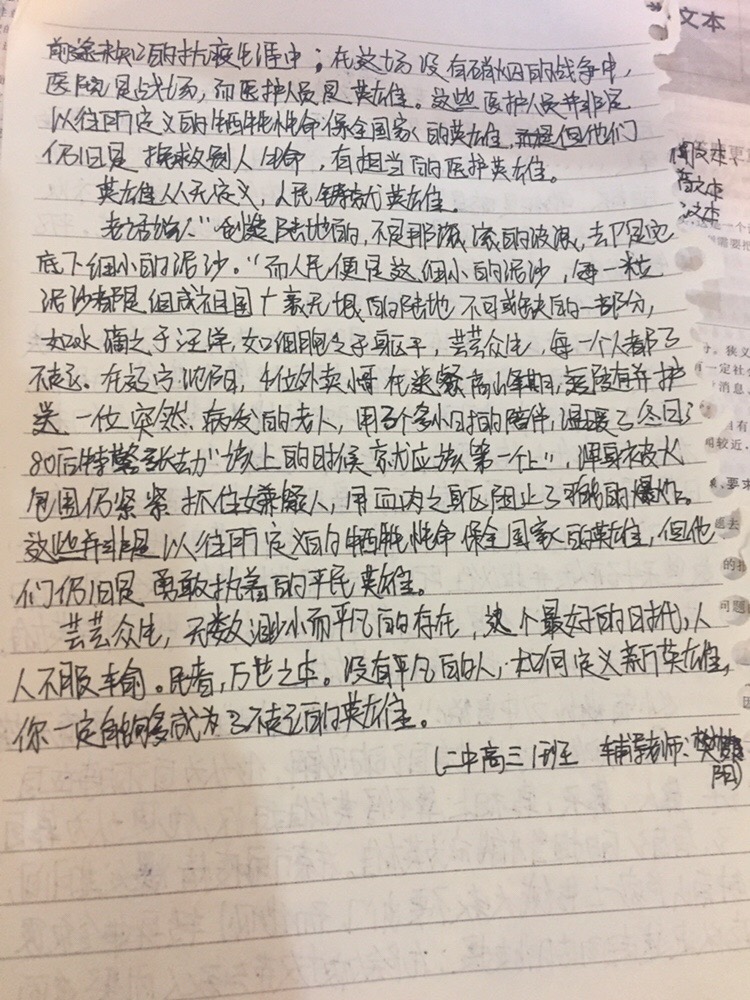 前途未知的抗疫生涯中；在这场没有硝烟的战争中，
医院是战场，而医护人员是英雄。这些医护人员并非是
以往所定义的牺牲性命保全国家的英雄，但他们
仍旧是拯救别人生命，有担当的医护英雄。
英雄从无定义，人民铸就英雄。
老话说："创造陆地的，不是那滚滚的波浪，却是它
底下细小的泥沙。"而人民便是这细小的泥沙，每一粒
泥沙都是组成祖国广袤无垠的陆地不可或缺的一部分，
如水滴之于汪洋，如细胞之于身躯，芸芸众生，每一个人都了
不起。在辽宁沈阳，4位外卖小哥在送餐高峰期，并护
送一位突然病发的老人，用3个多小时的陪伴，温暖了冬日；
80后特警张劼"该上的时候就应该第一个上"，浑身被火
包围仍紧紧抓住嫌疑人，用血肉之躯阻止了爆炸。
这些并非是以往所定义的牺牲性命保全国家的英雄，但他
们仍旧是勇敢执着的平民英雄。
芸芸众生，无数渺小而平凡的存在，这个最好的时代，人
人不服输。民者，万世之本。没有平凡的人，如何定义新英雄，
你一定能够成为了不起的英雄。
(二中高三1班 辅导老师：樊
阳)
文本
商文本
汉文本